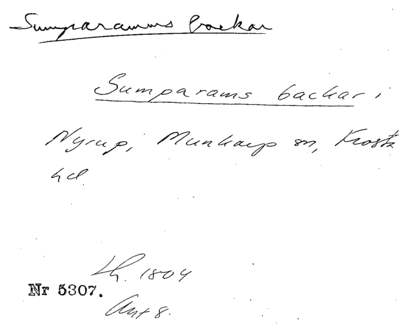 Sumparamms backar
Sumparams backar i
Nyrup, Munkarp sn, Frosta
hd.
Lh. 1804
Nr 5307.
Akt 8.